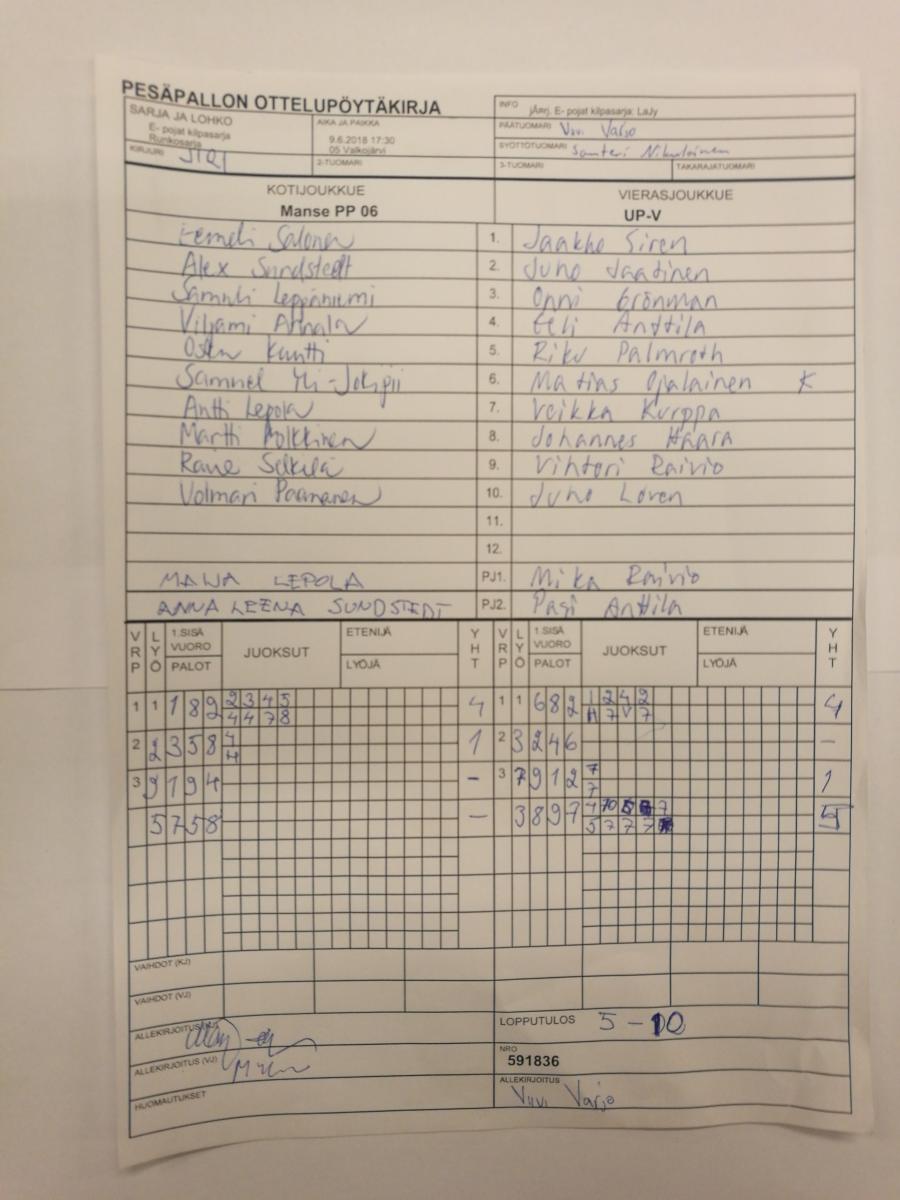 PESÄPALLON OTTELUPÖYTÄKIRJA
SARJA JA LOHKO
E- pojat kilpasarja
Runkosarja
KIRJURI
AIKA JA PAIKKA
9.6.2018 17:30
05 Valkojärvi
2-TUOMARI
INFO jÄrrj. E- pojat kilpasarja: LaJy
PÄÄTUOMARI Viivi Varjo
SYÖTTÖTUOMARI Santeri Nikulainen
3-TUOMARI TAKARAJATUOMARI
KOTIJOUKKUE VIERASJOUKKUE
Manse PP 06 UP-V
Eemeli Salonen 1. Jaakko Siren
Alex Sundstedt 2. Juho Jaatinen
Samuli Leppäniemi 3. Onni Grönman
Viljami Annala 4. Eeli Anttila
Kuntti 5. Riku Palmroth
Samuel Yli-Jokipii 6. Matias Ojalainen K
Antti Lepola 7. Veikka Kurppa
Martti Polkkinen 8. Johannes Haara
Selkälä 9. Vihtori Raivio
Volmari Paananen 10. Juho Loren
11.
12.
MAIJA LEPOLA PJ1. Mika Raivio
ANNA LEENA SUNDSTEDT PJ2. Pasi Anttila
VRP LYÖ 1.SISÄ VUORO PALOT JUOKSUT ETENIJÄ LYÖJÄ YHT VRP LYÖ 1.SISÄ VUORO PALOT JUOKSUT ETENIJÄ LYÖJÄ YHT
1 1 1 8 9 2 3 4 5 4 1 1 6 8 2 1 2 4 2 4
4 4 7 8 H 7 V 7
2 2 3 5 8 4 1 2 3 2 4 6 -
H
3 9 1 9 4 - 3 7 9 1 2 7 1
7
5 7 5 8 - 3 8 9 7 4 10 7 5
5 7 7 7
VAIHDOT (KJ)
VAIHDOT (VJ)
ALLEKIRJOITUS (KJ)
LOPPUTULOS 5 - 10
ALLEKIRJOITUS (VJ)
NRO
591836
HUOMAUTUKSET
ALLEKIRJOITUS
Viivi Varjo